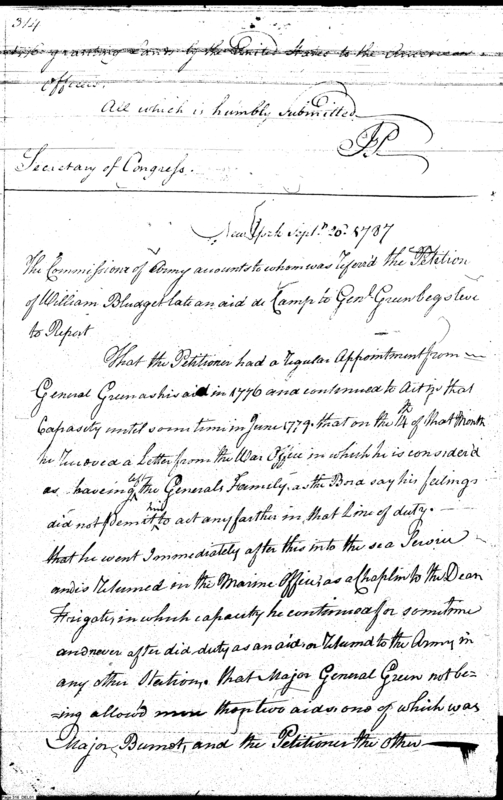 314
granting Lands by the United States to the American
Officers.
All which is humbly submitted
JP
Secretary of Congress.
New York Sept.r 20.th 1787
The Commissioner of Army accounts to whom was referd the Petition
of William Bludget late an aid de Camp to Gen.l Green begs leve
to Report
That the Petitioner had a regular Appointment from
General Green as his aid in 1776 and continued to Act in that
Capacity until some time in June 1779. that on the 4th of that Month
he Received a Letter from the War Office in which he is considerd
as haveing left the Generals Family. as the Bord say his feelings
did not permit him to act any farther in that Line of duty.
that he went Immediately after this into the sea Service
and is Returned on the Marine Office, as a Chaplin to the Dean
Frigate, in which capacity he continued for sometime
and never after did duty as an aid or returnd to the Army in
any other Station. that Major General Green not be-
-ing allowd more than two aids, one of which was
Major Burnet, and the Petitioner the other